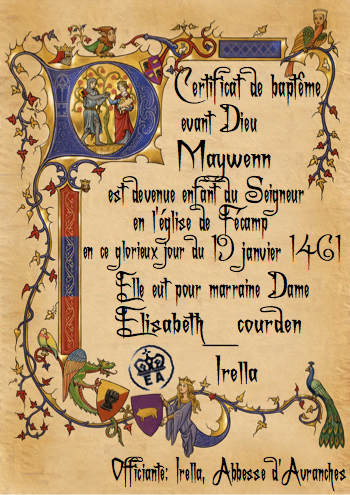 Certificat de baptême
evant Dieu
Maywenn
est devenue enfant du Seigneur
en l'église de Fécamp
en ce glorieux jour du 19 janvier 1461
Elle eut pour marraine Dame
Elisabeth__courden
Irella
EA
Officiante: Irella, Abbesse d'Avranches